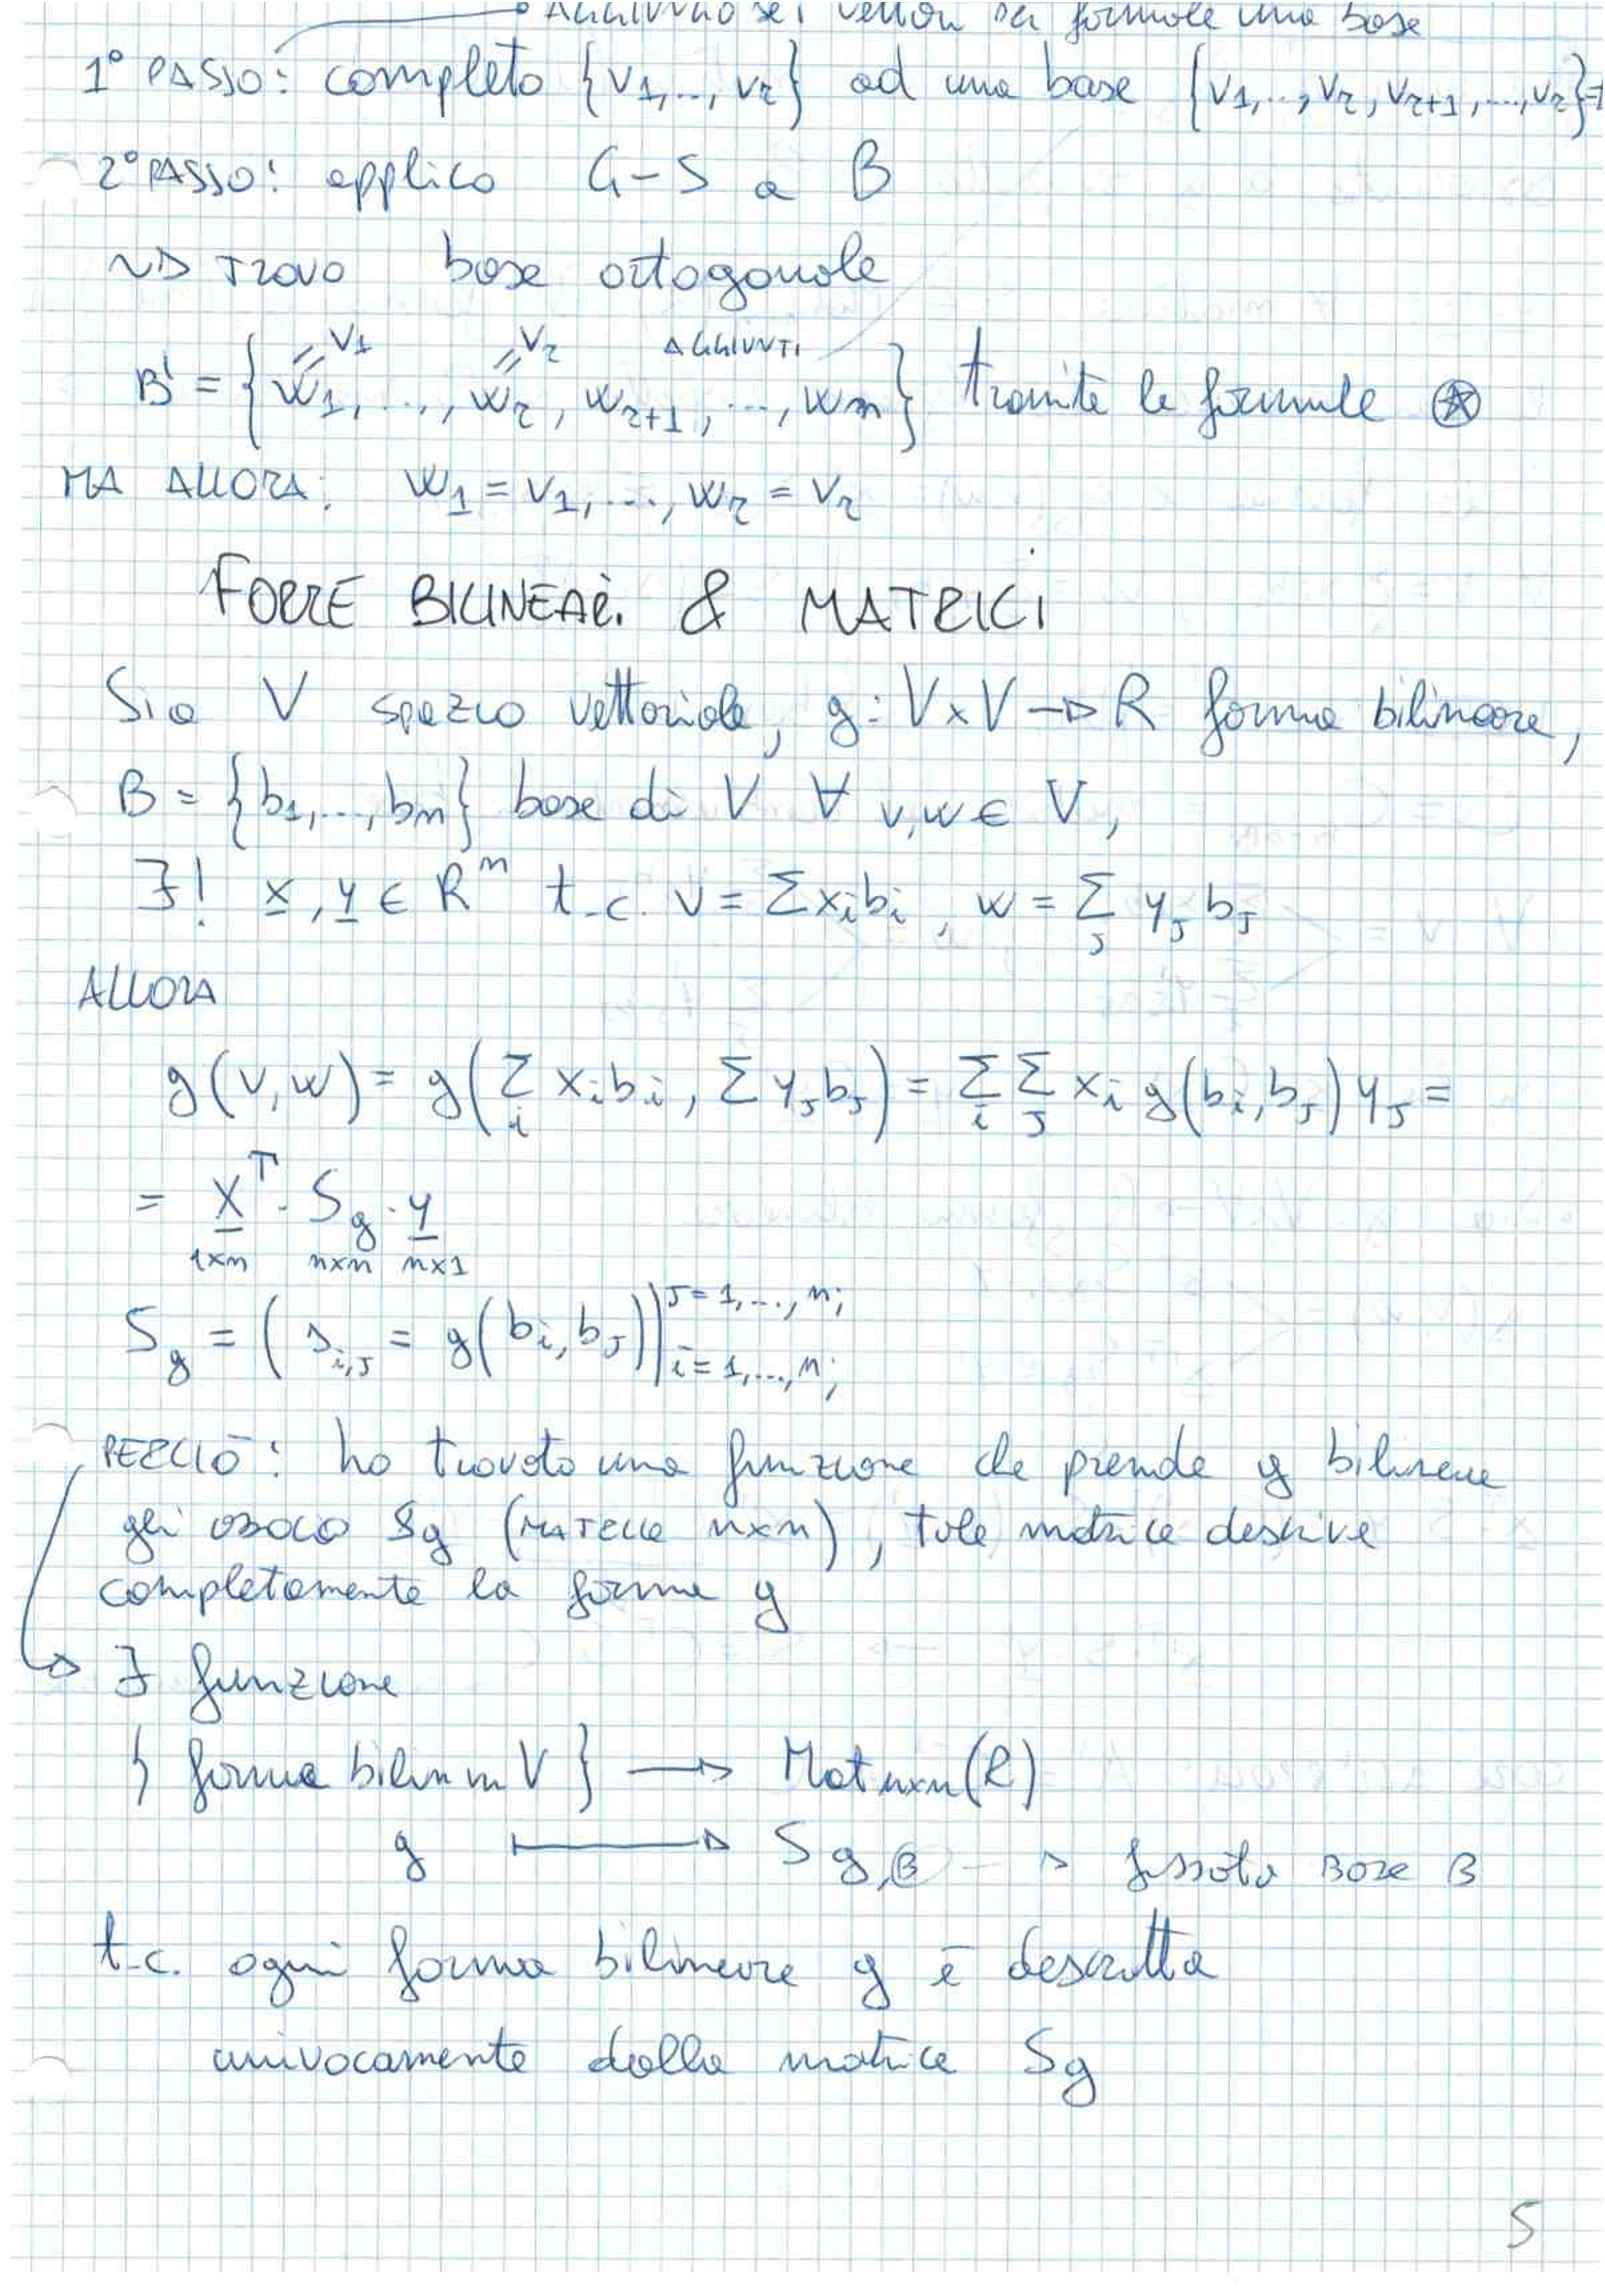 AGGIUNGO se i vettori per formare una base
1° PASSO: completo {v₁,..,vᵣ} ad una base {v₁,..,vᵣ,vᵣ₊₁,...,vᵣ}=
2° PASSO: applico G-S a B
~▷ TROVO base ortogonale
=v₁ =vᵣ AGGIUNTI
B' = {w₁,...,wᵣ,wᵣ₊₁,...,wₙ} tramite le formule ⍟
MA ALLORA: w₁=v₁,...,wᵣ=vᵣ
FORME BILINEARI & MATRICI
Sia V spazio vettoriale, g: V×V → R forma bilineare,
B = {b₁,...,bₙ} base di V ∀ v,w ∈ V,
∃! x,y ∈ Rⁿ t.c. v = Σxᵢbᵢ, w = Σⱼ yⱼ bⱼ
ALLORA
g(v,w) = g(Σᵢ xᵢbᵢ, Σ yⱼbⱼ) = Σᵢ Σⱼ xᵢ g(bᵢ,bⱼ) yⱼ =
= xᵀ · S_g · y
1×n n×n n×1
S_g = (s_{i,j} = g(bᵢ,bⱼ))^{j=1,...,n;}_{i=1,...,n;}
PERCIÒ: ho trovato una funzione che prende g bilineare
gli associo Sg (MATRICE n×n), tale matrice descrive
completamente la forma g
→ ∃ funzione
{ forme bilin in V } → Mat n×n(R)
g ⟼ S g,B → fissata BASE B
t.c. ogni forma bilineare g è descritta
univocamente dalla matrice Sg
5